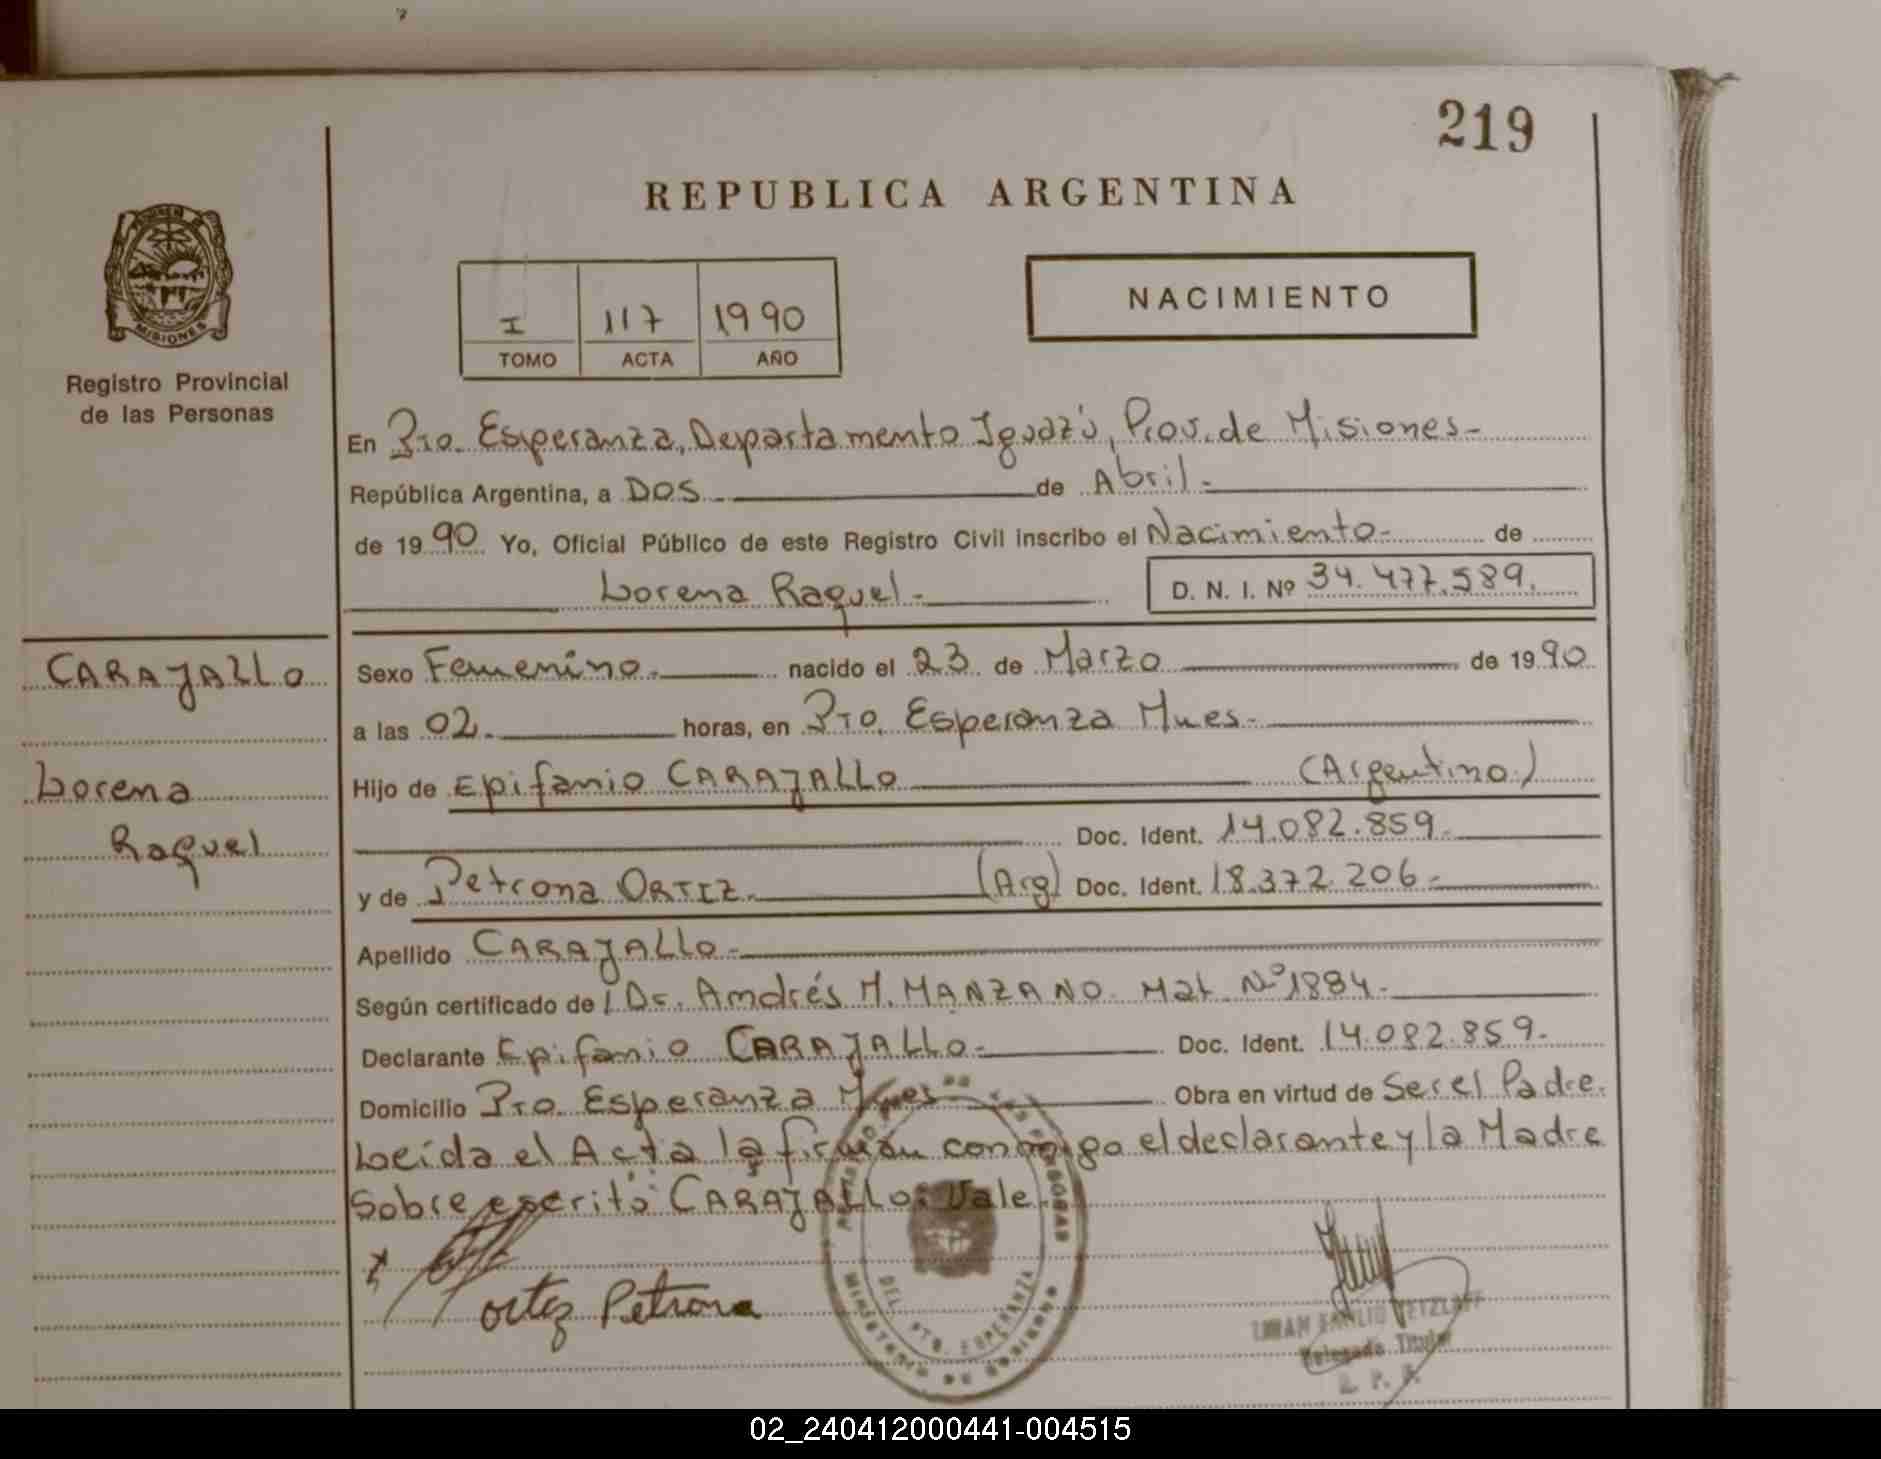 219
REPUBLICA ARGENTINA
MISIONES
Registro Provincial
de las Personas
I 117 1990
TOMO ACTA AÑO
NACIMIENTO
En Pto. Esperanza, Departamento Iguazú, Prov. de Misiones-
República Argentina, a DOS. de Abril.
de 1990 Yo, Oficial Público de este Registro Civil inscribo el Nacimiento- de
Lorena Raquel- D. N. I. Nº 34.477.589.
CARAJALLO
Lorena
Raquel
Sexo Femenino. nacido el 23 de Marzo de 1990
a las 02. horas, en Pto. Esperanza Mnes-
Hijo de Epifanio CARAJALLO (Argentino)
Doc. Ident. 14.082.859-
y de Petrona ORTIZ. (Arg) Doc. Ident. 18.372.206-
Apellido CARAJALLO-
Según certificado de l Dr. Andrés M. MANZANO. Mat. Nº 1884-
Declarante Epifanio CARAJALLO- Doc. Ident. 14.082.859-
Domicilio Pto. Esperanza Mnes Obra en virtud de Ser el Padre.
Leída el Acta la firman conmigo el declarante y la Madre
Sobre escrito: CARAJALLO: Vale.
Ortiz Petrona
MINISTERIO DE GOBIERNO
DEL PTO. ESPERANZA
Delegado Titular
R. P. P.
02_240412000441-004515